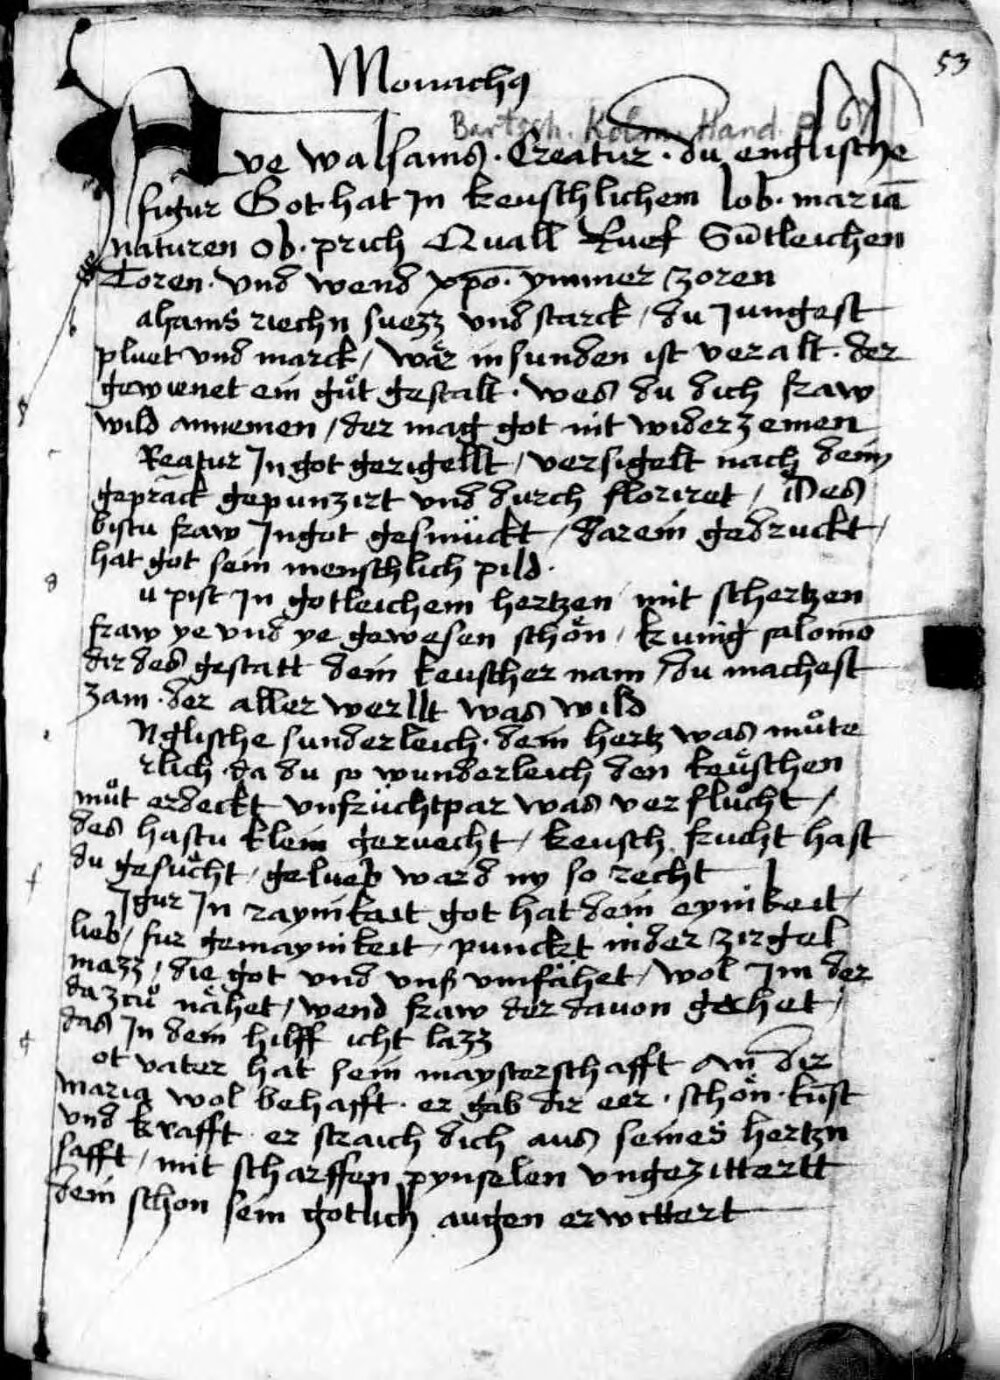 53
Monachꝰ
Bartsch. Kolm. Hand. p. 67
Ave walsams · Creatur · du englische
figur Got hat Jn keuschlichem lob · mariā
naturen ob · prich Quall Ruef Sūtleichen
Toren · vnd wend xp̄o · ymmer zoren
alsams riechn suezz vnd starck / du Jungest
pluet vnd marck / wår in sunden ist veralt · der
gewienet ein gůt gestalt · wes du dich fraw
wild annemen / der mag got nit widerzemen
Reatur Jn got gerigellt / versigelt nach deim
gepråck gepunzirt vnd durch floriret / des
bistu fraw Jn got gesmückt / darein gedruckt /
hat got sein menschlich pild ·
u pist Jn gotleichem hertzen mit schertzen
fraw ye vnd ye gewesen schön / kunig salomō
dir des gestatt dein keuscher nam / du machest
zam · der aller werllt was wild
Nglische sunderleich · dein hertz was můte
rlich · da du so wunderleich den keůschen
můt erdeckt vnfrüchtpar was verflůcht /
des hastu klein geruecht / keusch frucht hast
du gesůcht / geluep ward ny so recht
Jgur Jn raynikait got hat dein eynikeit /
lieb / fur gemaynikeit / punckt in der zirgel
mazz / die got vnd vnß vmfåhet / wol Jm der
dazců nåhet / wend fraw der dauon gehet /
das Jn dein hilff icht lazz
ot vater hat sein maysterschafft An dir
maria wol behafft · er gab dir eer · schön · kūst
vnd krafft · er straich dich aus seines hertzn
safft / mit scharffen pynselen vngezittertt
dein schon sein gotlich augen erwittert